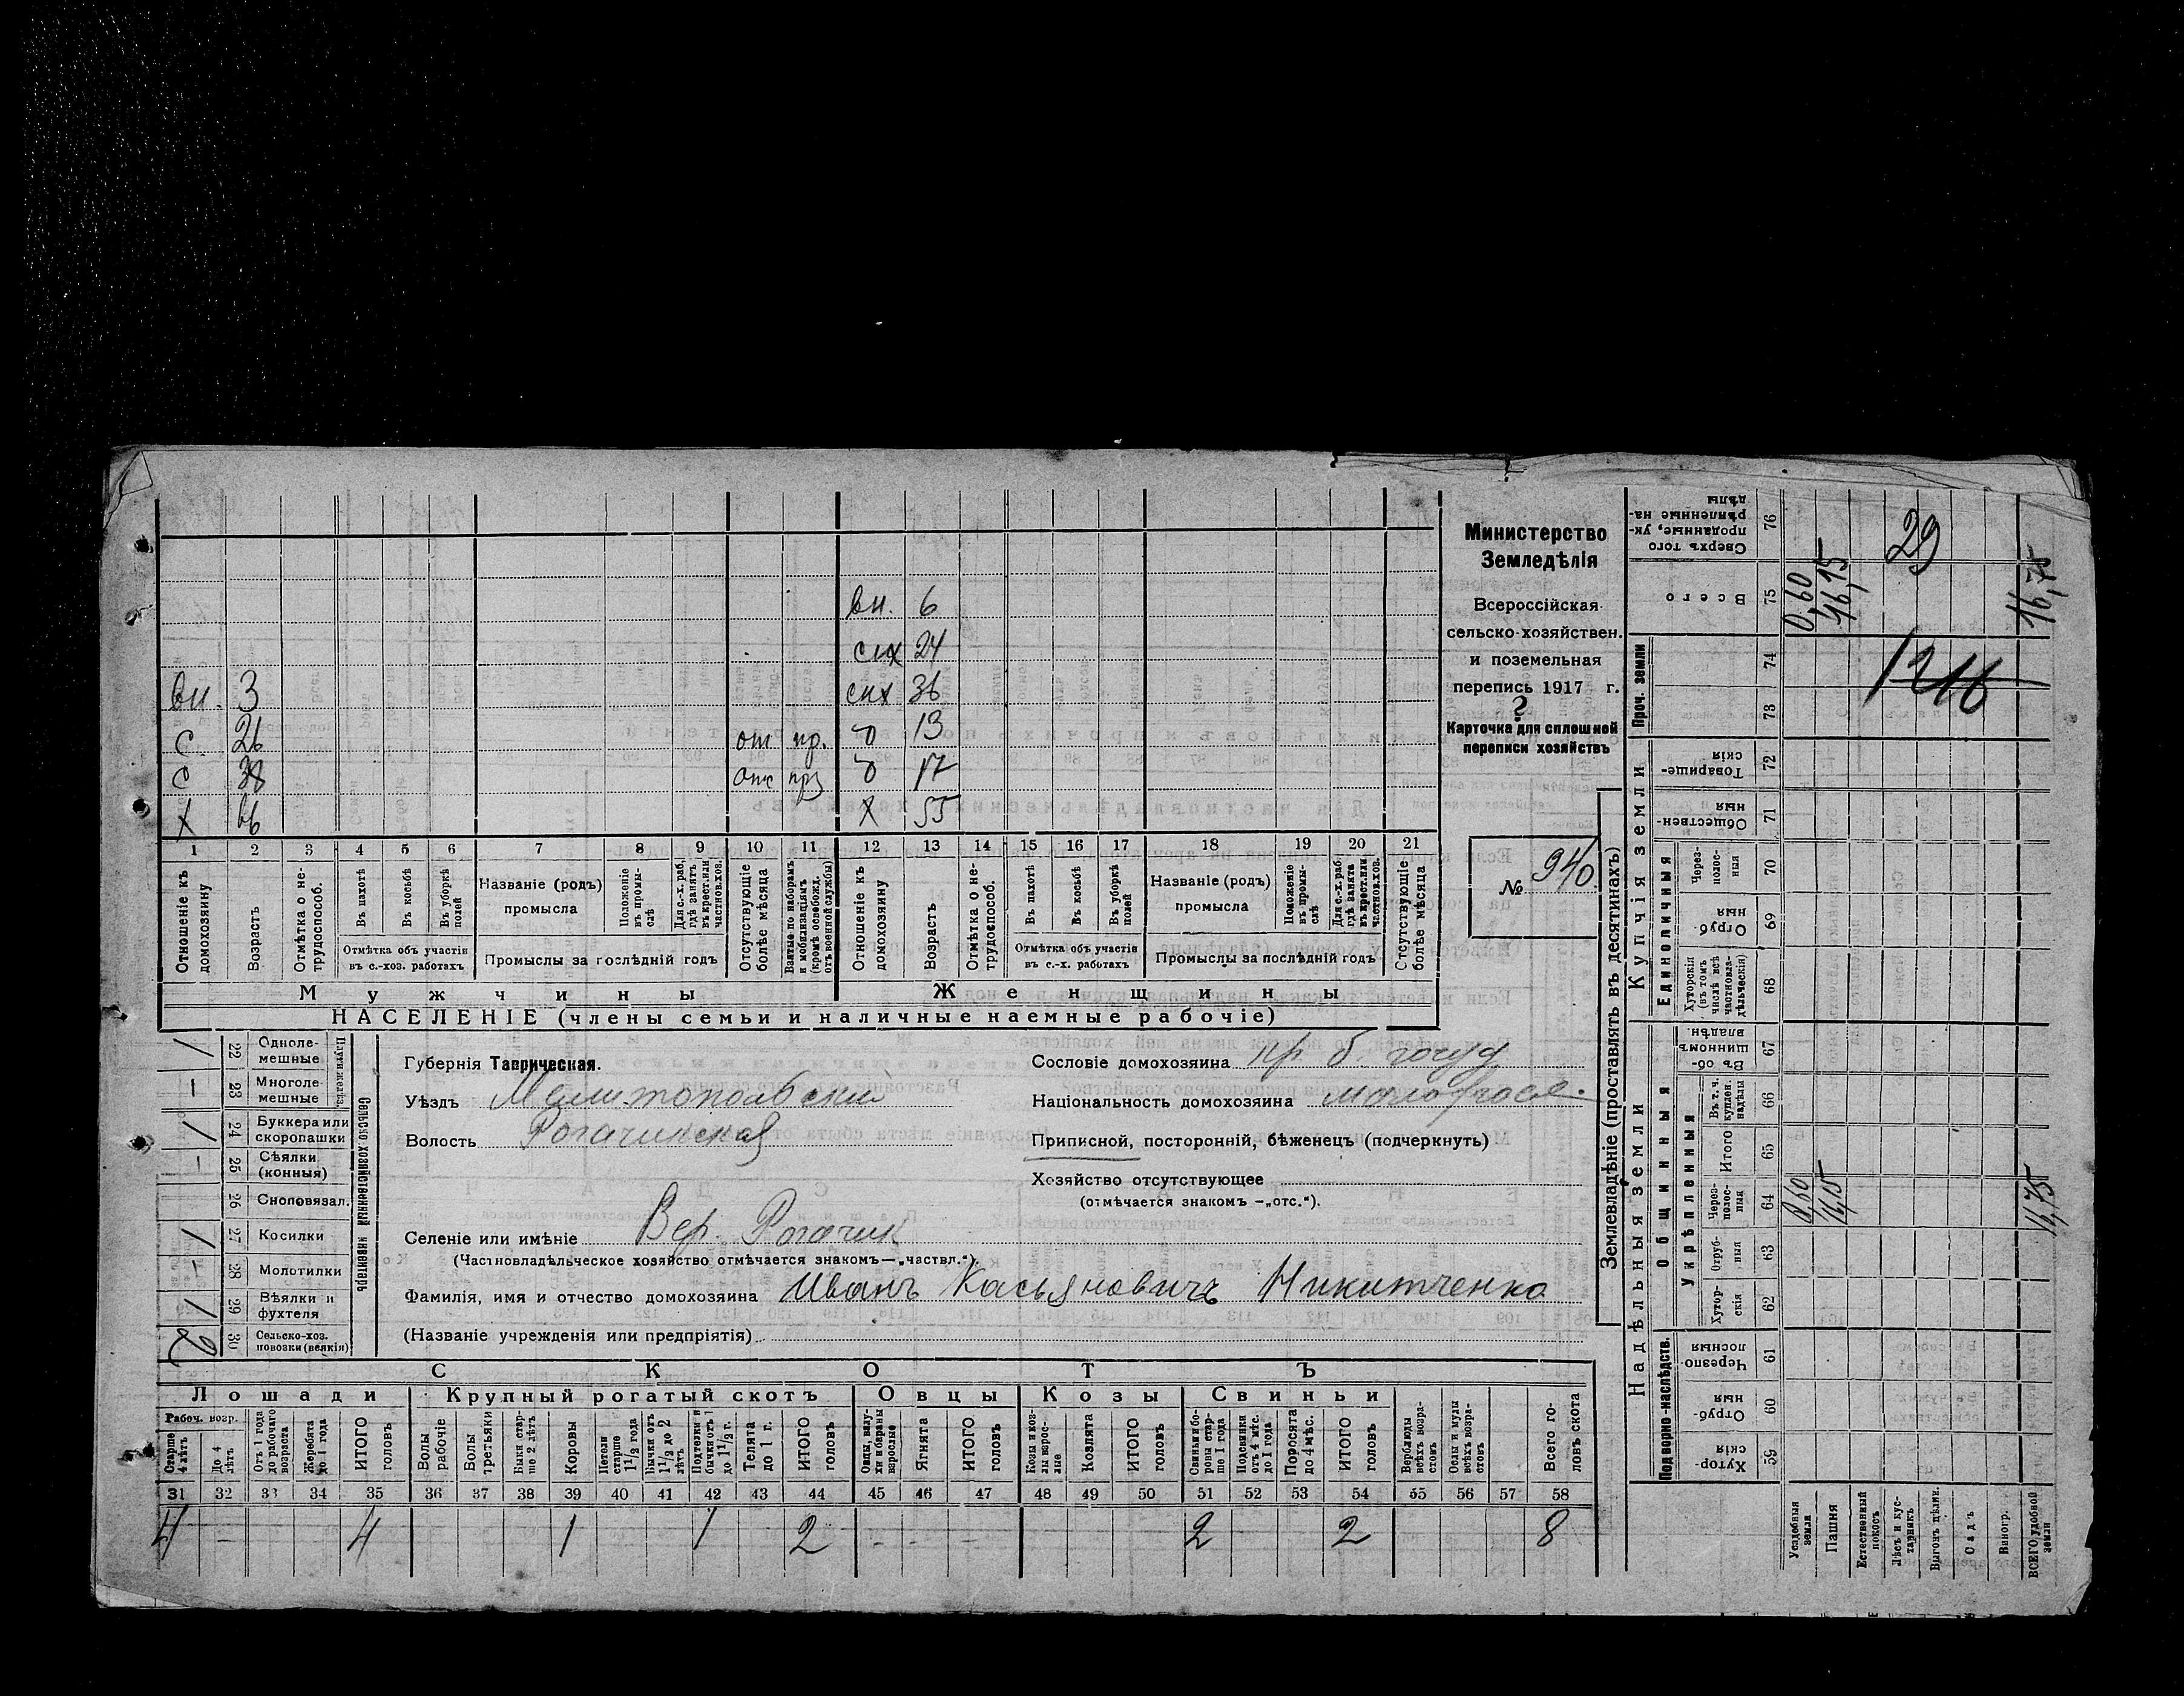 вн. 6
сих 24
вн. 3 сих 36
с 26 от пр. д 13
с 38 отс прз д 17
х 66 х 55
1 2 3 4 5 6 7 8 9 10 11 12 13 14 15 16 17 18 19 20 21
Отношеніе къ домохозяину
Возрастъ
Отмѣтка о не-трудоспособ.
Въ пахотѣ
Въ косьбѣ
Въ уборкѣ полей
Отмѣтка объ участіи въ с.-хоз. работахъ
Названіе (родъ) промысла
Положеніе въ промы-слѣ
Для с.-х. раб. гдѣ занятъ въ крест. или частнов. хоз.
Промыслы за послѣдній годъ
Отсутствующіе болѣе мѣсяца
Взятые по наборамъ и мобилизаціямъ (кромѣ освобожд. отъ военной службы)
Отношеніе къ домохозяину
Возрастъ
Отмѣтка о не-трудоспособ.
Въ пахотѣ
Въ косьбѣ
Въ уборкѣ полей
Отмѣтка объ участіи въ с.-х. работахъ
Названіе (родъ) промысла
Положеніе въ промы-слѣ
Для с.-х. раб. гдѣ занята въ крест. или частнов. хоз.
Промыслы за послѣдній годъ
Отсутствующіе болѣе мѣсяца
Мужчины Женщины
НАСЕЛЕНІЕ (члены семьи и наличные наемные рабочіе)
Министерство
Земледѣлія
Всероссійская
сельско-хозяйствен.
и поземельная
перепись 1917 г.
?
Карточка для сплошной
переписи хозяйствъ
№ 940
Плуги желѣз.
Сельско-хозяйственный инвентарь
22 Одноле-мешные
23 Многоле-мешные
24 Буккера или скоропашки
25 Сѣялки (конныя)
26 Сноповязал.
27 Косилки
28 Молотилки
29 Вѣялки и фухтеля
30 Сельско-хоз. повозки (всякія) 2
Губернія Таврическая.
Уѣздъ Мелитопольскій
Волость Рогачинская
Селеніе или имѣніе Вер. Рогачик
(Частновладѣльческое хозяйство отмѣчается знакомъ—„частвл.“)
Фамилія, имя и отчество домохозяина Иванъ Касьяновичъ Никитченко
(Названіе учрежденія или предпріятія)
Сословіе домохозяина кр. б. госуд
Національность домохозяина малоросс.
Приписной, посторонній, бѣженецъ (подчеркнуть)
Хозяйство отсутствующее
(отмѣчается знакомъ —„отс.“).
СКОТЪ
Лошади Крупный рогатый скотъ Овцы Козы Свиньи
Рабоч. возр.
Старше 4 лѣтъ
До 4 лѣтъ
Отъ 1 года до рабочаго возраста
Жеребята до 1 года
ИТОГО головъ
Волы рабочіе
Волы третьяки
Быки стар-ше 2 лѣтъ
Коровы
Нетели старше 1 1/2 года
Бычки отъ 1 1/2 до 2 лѣтъ
Подтелки и бычки отъ 1 до 1 1/2 г.
Телята до 1 г.
ИТОГО головъ
Овцы, валу-хи и бараны взрослые
Ягнята
ИТОГО головъ
Козы и коз-лы взрос-лые
Козлята
ИТОГО головъ
Свиньи и бо-ровы стар-ше 1 года
Подсвинки отъ 4 мѣс. до 1 года
Поросята до 4 мѣс.
ИТОГО головъ
Верблюды всѣхъ возра-стовъ
Ослы и мулы всѣхъ возра-стовъ
Всего го-ловъ скота
31 32 33 34 35 36 37 38 39 40 41 42 43 44 45 46 47 48 49 50 51 52 53 54 55 56 57 58
4 - 4 1 1 2 2 2 8
Землевладѣніе (проставлять въ десятинахъ)
Надѣльныя земли Купчія земли Проч. земли
Подворно-наслѣдств.
Общинныя
Укрѣпленныя
Единоличныя
Хутор-скія 59
Отруб-ныя 60
Черезпо-лосныя 61
Хутор-скія 62
Отруб-ныя 63
Через-полос-ныя 64
Итого 65
Въ т. ч. куплен. надѣлы 66
Въ об-щинномъ владѣн. 67
Хуторскія (въ томъ числѣ всѣ частновла-дѣльческія) 68
Отруб-ныя 69
Через-полос-ныя 70
Обществен-ныя 71
Товарище-скія 72
73
74
Всего 75
Сверхъ того проданные, ук-рѣпленные на-дѣлы 76
Усадебная земля
Пашня
Естественный покосъ
Лѣсъ и кус-тарникъ
Выгонъ цѣлин.
Садъ
Виногр.
ВСЕГО удобной земли
0,60 16,15 16,75
0,60 16,15 16,75
29